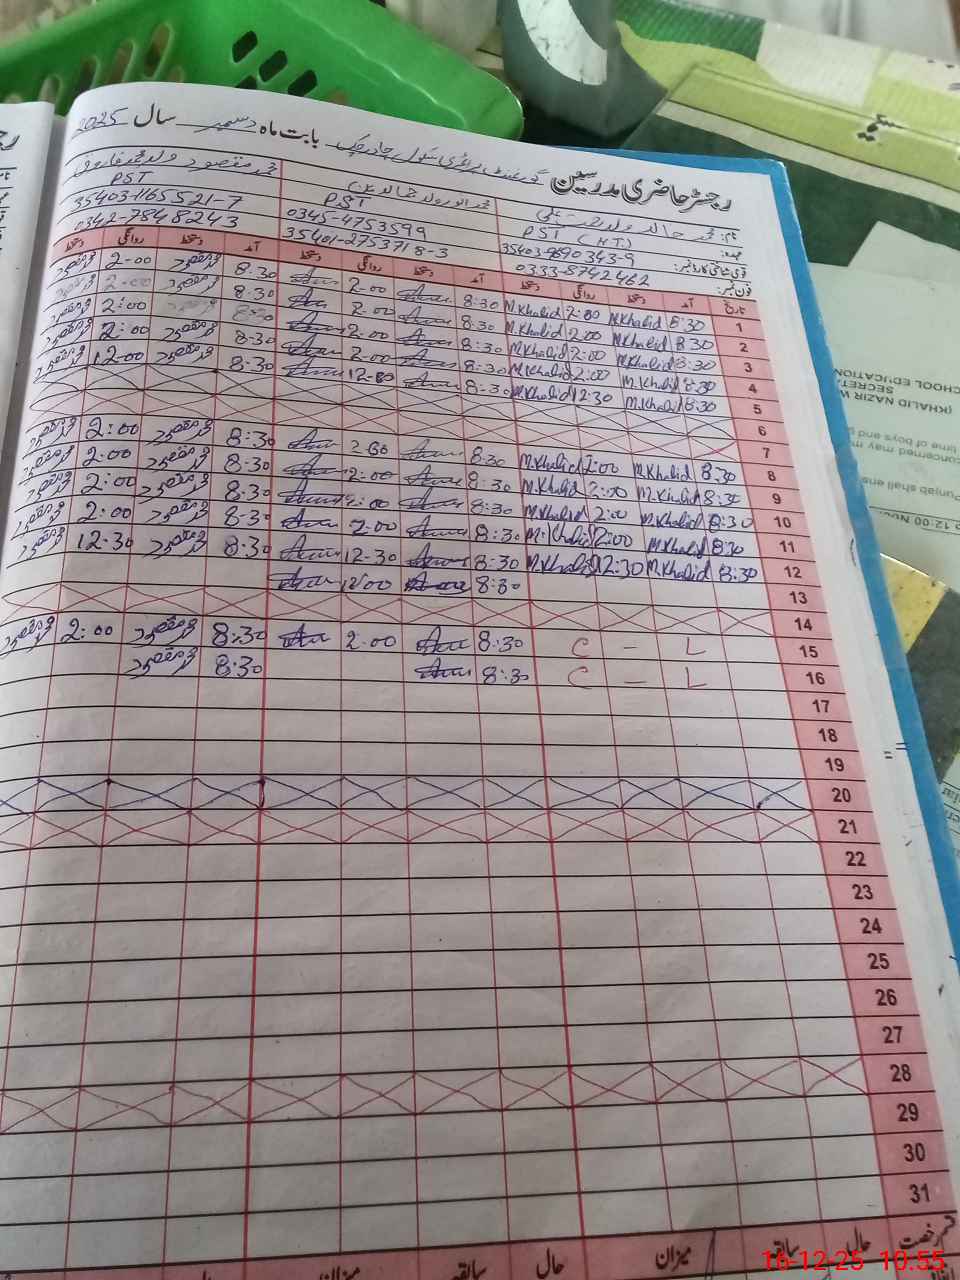 رجسٹر حاضری مدرسین گورنمنٹ پرائمری سکول بابت ماہ دسمبر سال 2025
نام: محمد خالد ولد محمد انور ولد خالد دین محمد مقصود ولد محمد فاروق
عہدہ: PST (H.T) PST PST
قومی شناختی کارڈ نمبر: 35403-1165521-7
فون نمبر: 0333-8742462 0345-4753599 0342-7848243
35401-2753718-3
تاریخ آمد دستخط روانگی دستخط آمد دستخط روانگی دستخط آمد دستخط روانگی دستخط
1 8:30 M.Khalid 2:00 M.Khalid 8:30 2.00 8.30 محمد مقصود 2-00 محمد مقصود
2 8:30 M.Khalid 2:00 M.Khalid 8:30 2.00 8.30 محمد مقصود 2-00 محمد مقصود
3 8:30 M.Khalid 2:00 M.Khalid 8:30 2.00 8.30 2:00 محمد مقصود
4 8:30 M.Khalid 2:00 M.Khalid 8:30 2.00 8.30 محمد مقصود 2:00 محمد مقصود
5 8:30 M.Khalid 12:30 M.Khalid 8:30 12-00 8.30 محمد مقصود 12-00 محمد مقصود
6
7
8 8:30 M.Khalid 2:00 M.Khalid 8:30 2.00 8.30 محمد مقصود 2:00 محمد مقصود
9 8:30 M.Khalid 2:00 M.Khalid 8:30 2.00 8.30 محمد مقصود 2:00 محمد مقصود
10 8:30 M.Khalid 2:00 M.Khalid 8:30 2:00 8.30 محمد مقصود 2:00 محمد مقصود
11 8:30 M.Khalid 2:00 M.Khalid 8:30 2.00 8.30 محمد مقصود 2:00 محمد مقصود
12 8:30 M.Khalid 12:30 M.Khalid 8:30 12.30 8.30 محمد مقصود 12.30 محمد مقصود
13 8:30 12:00
14
15 C - L 8:30 2.00 8:30 محمد مقصود 2:00 محمد مقصود
16 C - L 8:30 8:30 محمد مقصود
17
18
19
20
21
22
23
24
25
26
27
28
29
30
31
قسم رخصت حال سابقہ میزان حال سابقہ میزان
16-12-25 10:55
(KHALID NAZIR W
SECRET
CHOOL EDUCATION
time of boys and
concerned may m
Punjab shall ens
12:00 Noo